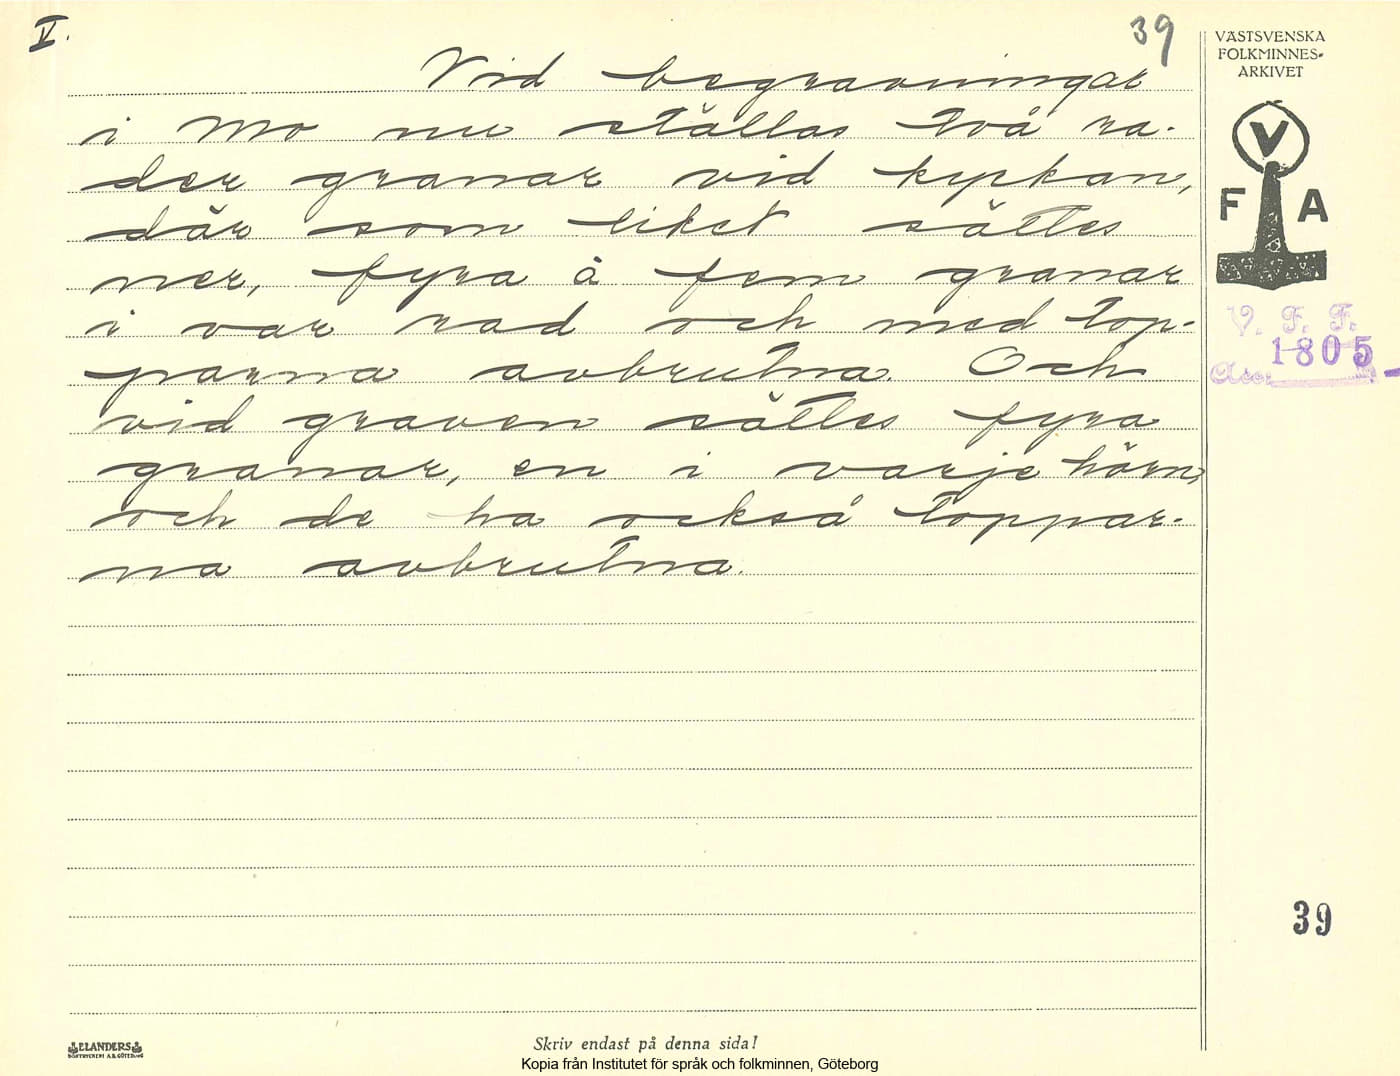 V.
39
Vid begravningar
i Mo nu ställas två ra-
der granar vid kyrkan,
där som liket sättes
ner, fyra à fem granar
i var rad och med top-
parna avbrutna. Och
vid graven sättes fyra
granar, en i varje hörn,
och de ha också toppar-
na avbrutna.
VÄSTSVENSKA
FOLKMINNES-
ARKIVET
V
F A
V. F. F.
Acc. 1805
39
ELANDERS
BOKTRYCKERI A.B. GÖTEBORG
Skriv endast på denna sida!
Kopia från Institutet för språk och folkminnen, Göteborg